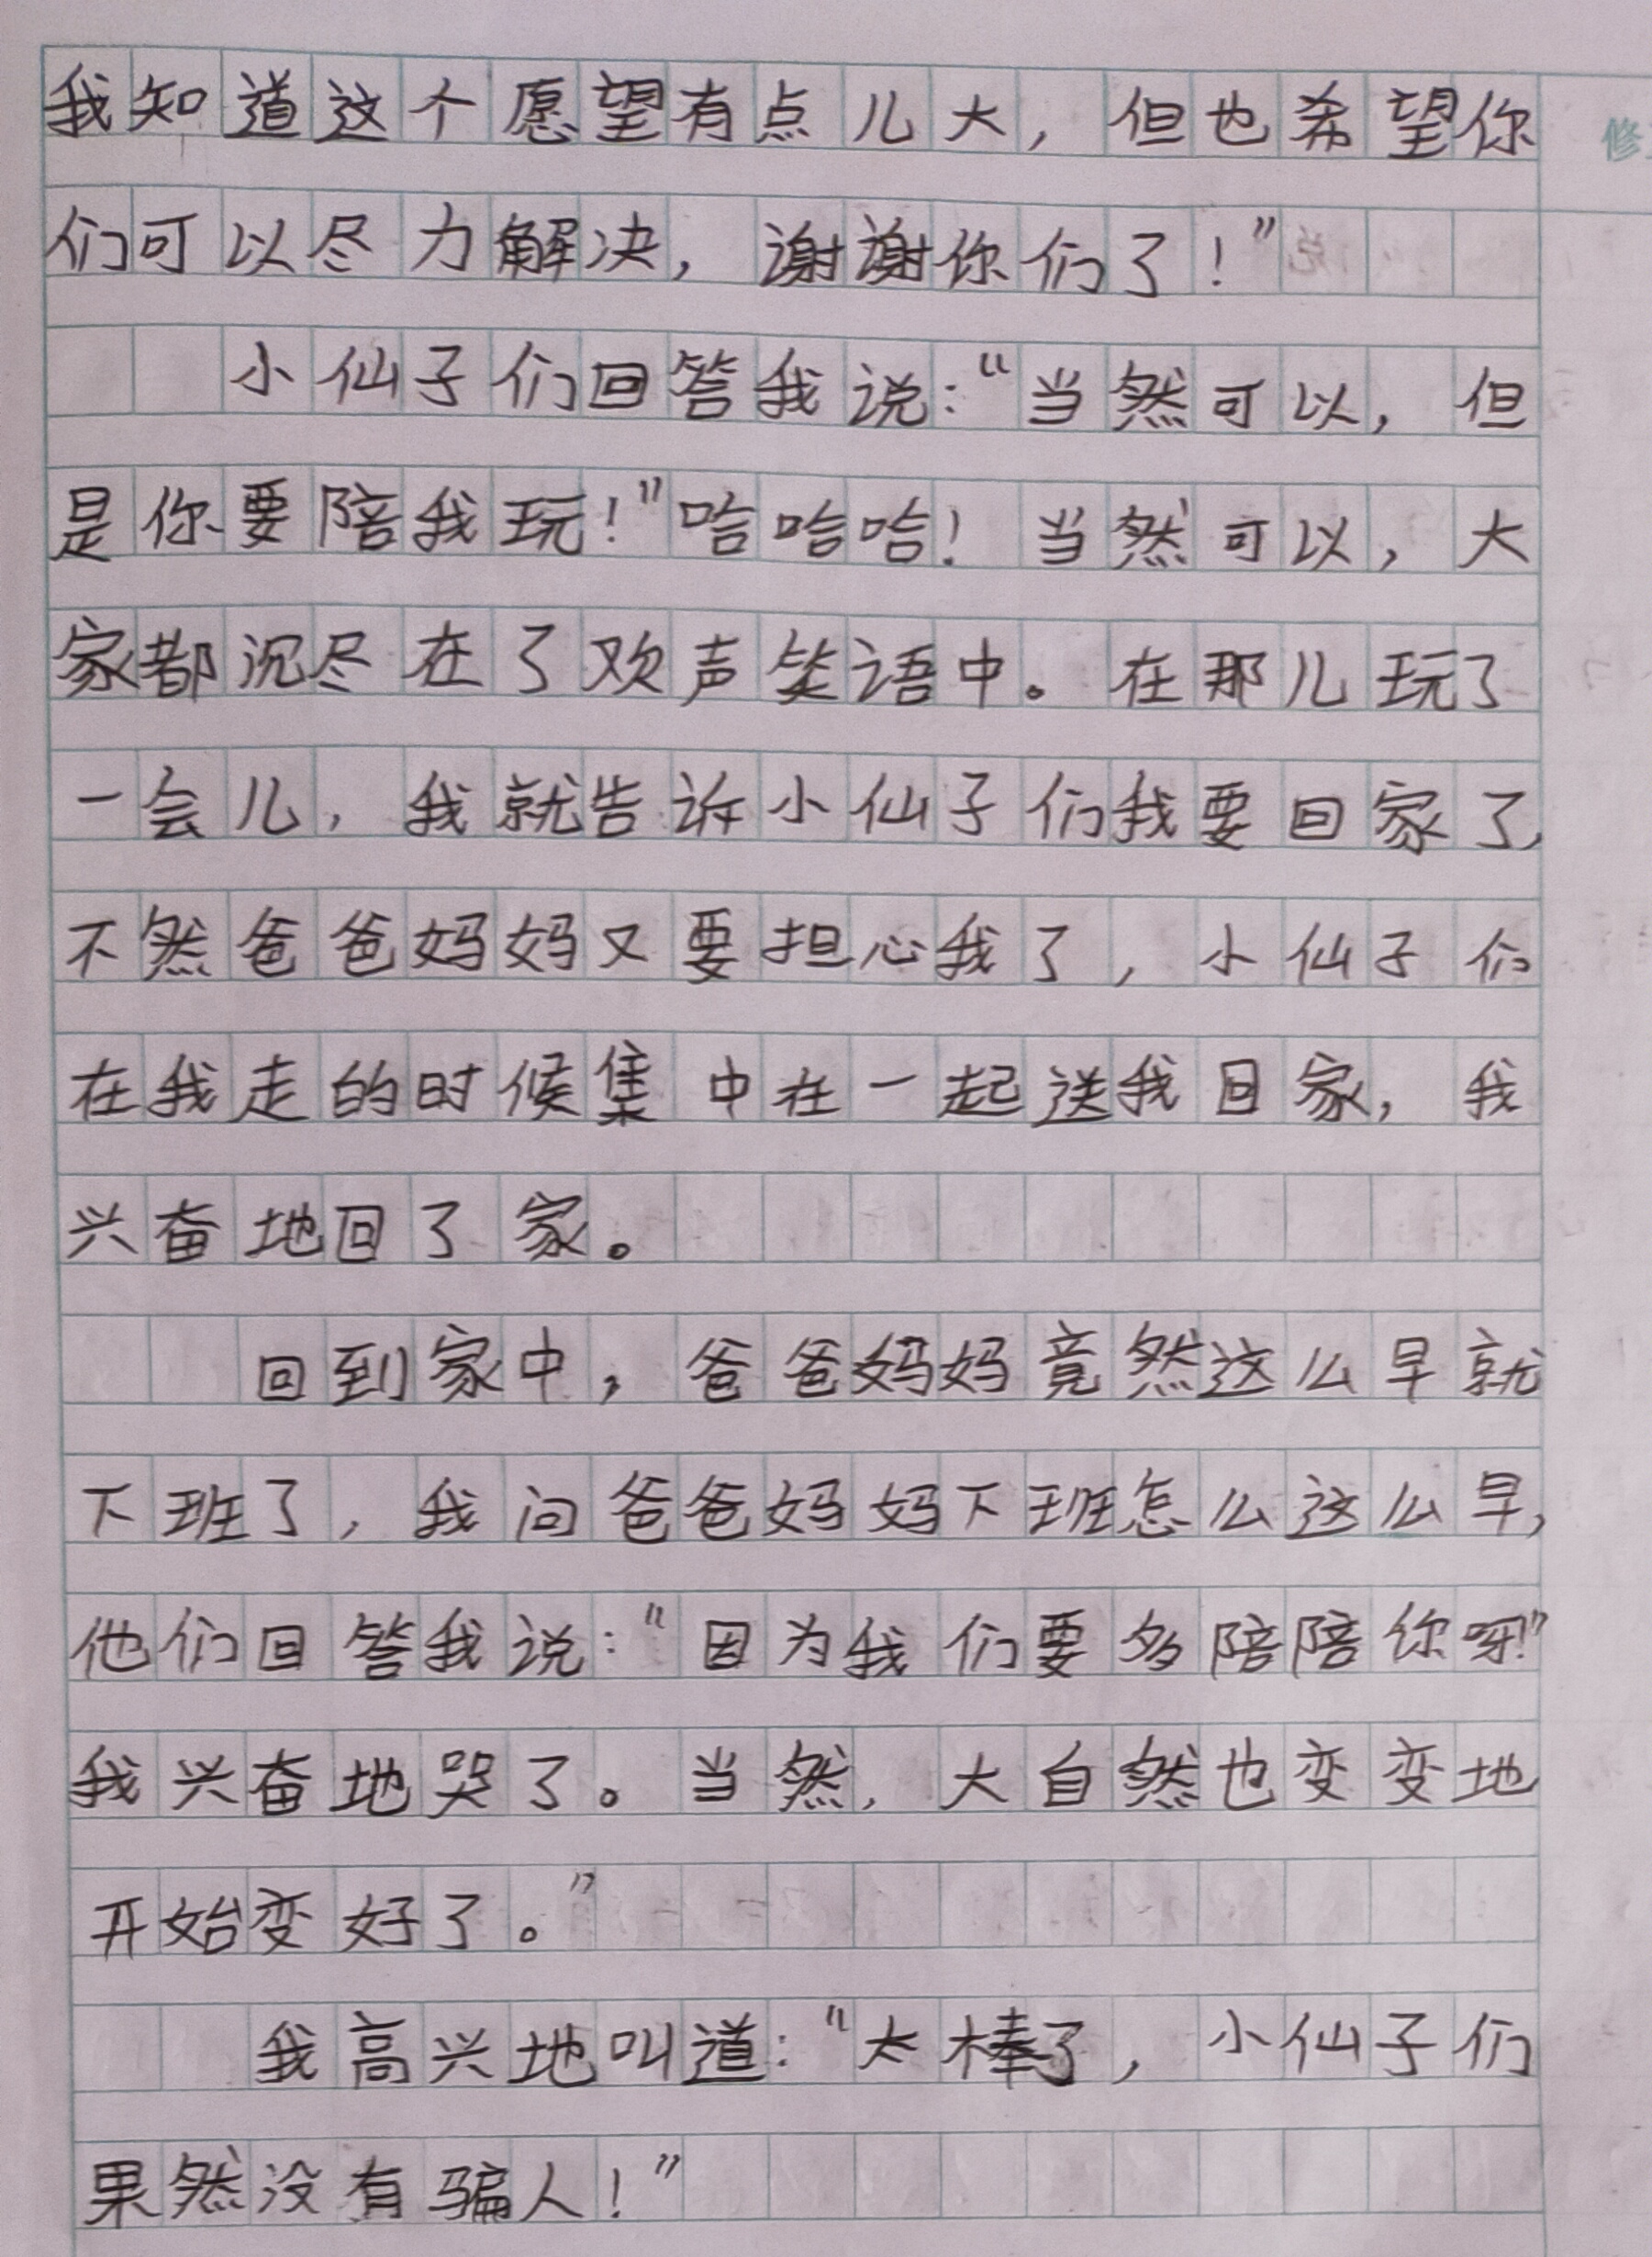 我知道这个愿望有点儿大，但也希望你
们可以尽力解决，谢谢你们了！”
小仙子们回答我说：“当然可以，但
是你要陪我玩！”哈哈哈！当然可以，大
家都沉尽在了欢声笑语中。在那儿玩了
一会儿，我就告诉小仙子们我要回家了，
不然爸爸妈妈又要担心我了，小仙子们
在我走的时候集中在一起送我回家，我
兴奋地回了家。
回到家中，爸爸妈妈竟然这么早就
下班了，我问爸爸妈妈下班怎么这么早，
他们回答我说：“因为我们要多陪陪你呀！”
我兴奋地哭了。当然，大自然也变变地
开始变好了。”
我高兴地叫道：“太棒了，小仙子们
果然没有骗人！”